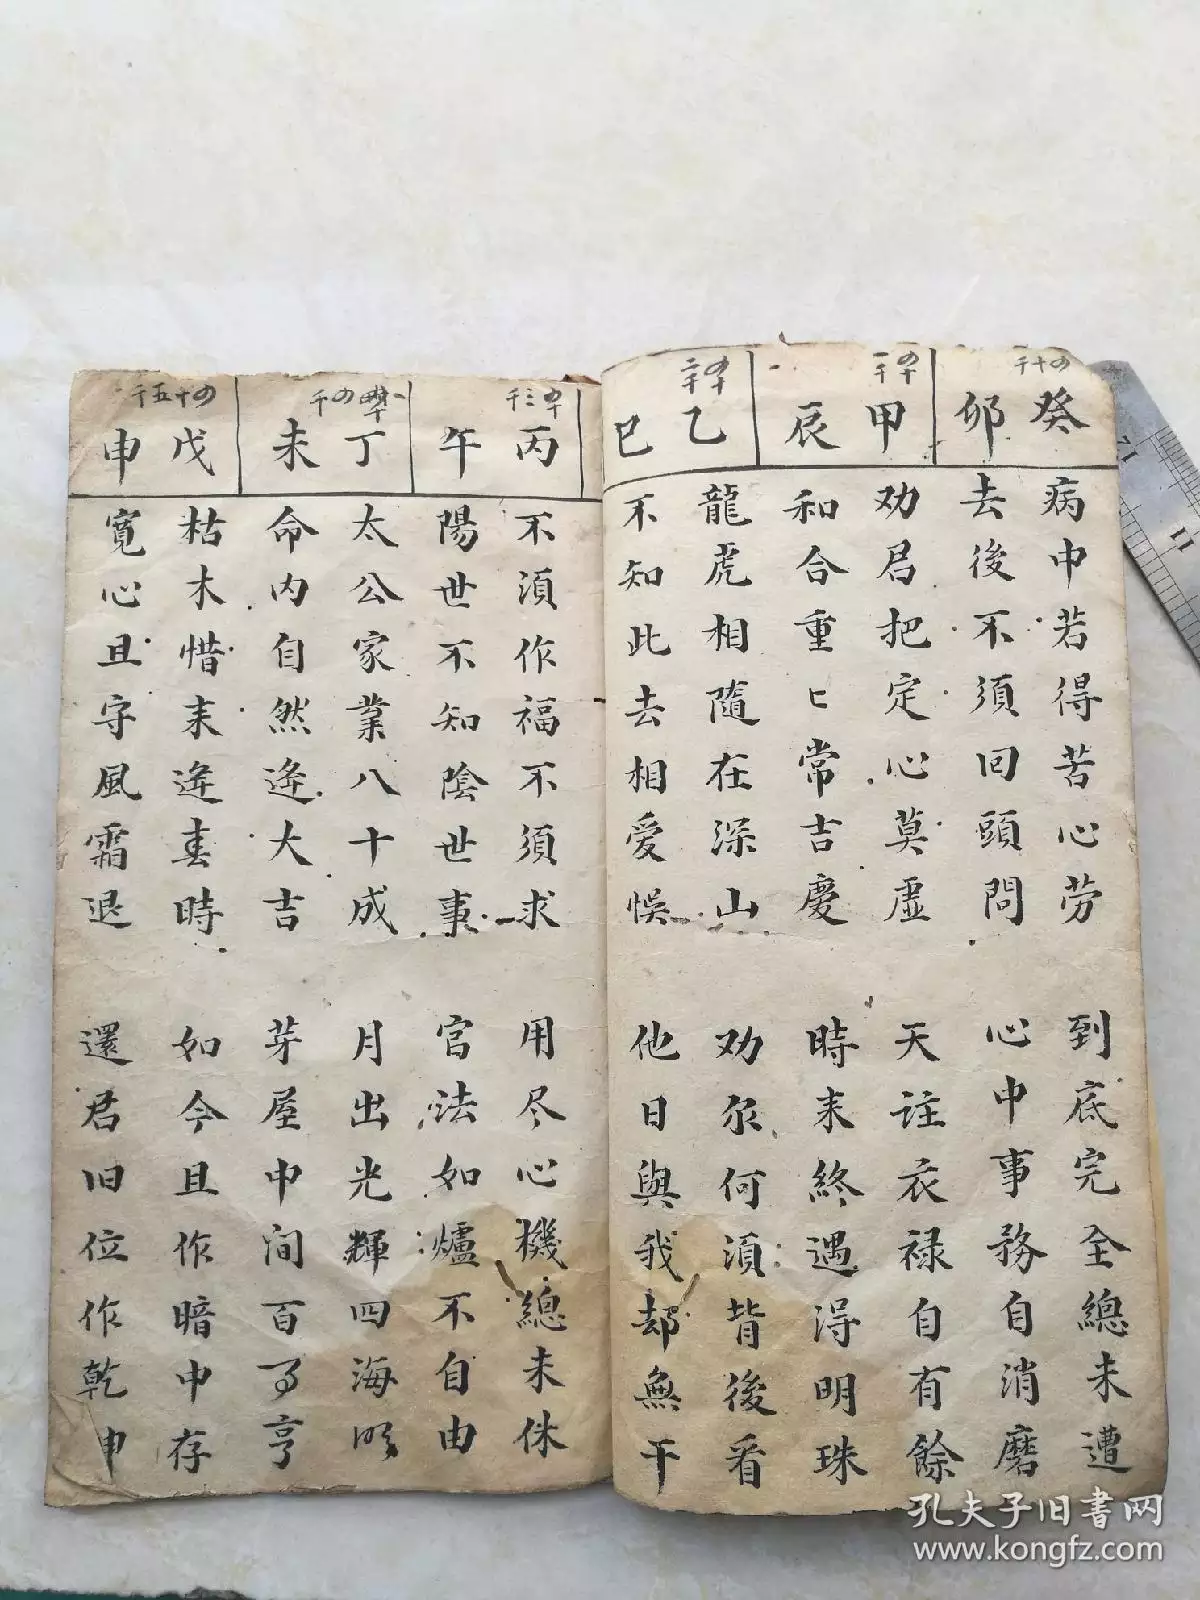 癸卯
病中若得苦心劳 到底完全總未遭
去後不須回頭問 心中事務自消磨
甲辰
劝君把定心莫虚 天註衣禄自有餘
和合重ヒ常吉慶 時耒終遇得明珠
乙巳
龍虎相隨在深山 劝尔何須背後看
不知此去相爱悞 他日與我却無干
丙午
不須作福不須求 用尽心機總未休
陽世不知陰世事 官法如爐不自由
丁未
太公家業八十成 月出光輝四海明
命内自然逢大吉 芽屋中间百了亨
戊申
枯木惜耒逢春時 如今且作暗中存
寬心且守風霜退 還君旧位作乾申
孔夫子旧书网
www.kongfz.com